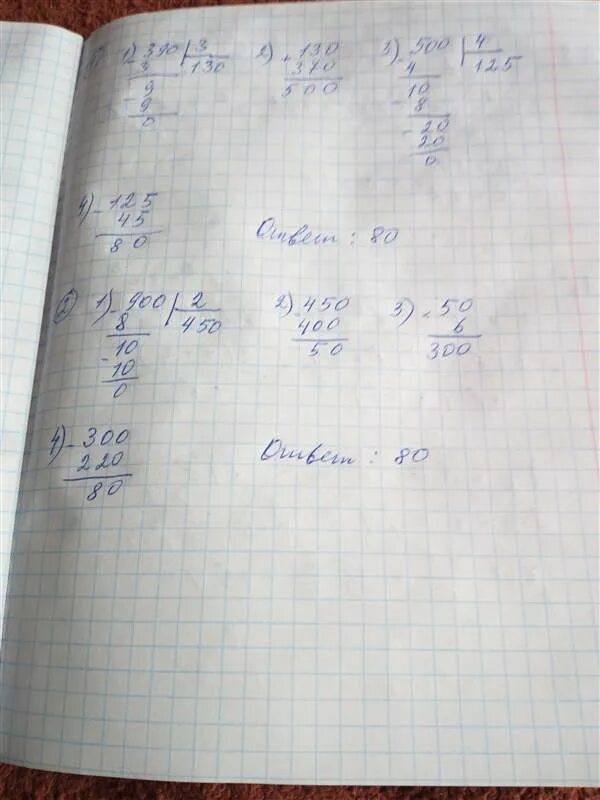 1) 1) - 390 | 3 2) + 130 3) - 500 | 4
3 130 370 4 125
- 9 500 10
9 - 8
0 - 20
20
0
4) - 125
45 Ответ : 80
80
2) 1) - 900 | 2 2) - 450 3) × 50
8 450 400 6
- 10 50 300
10
0
4) - 300
220 Ответ : 80
80